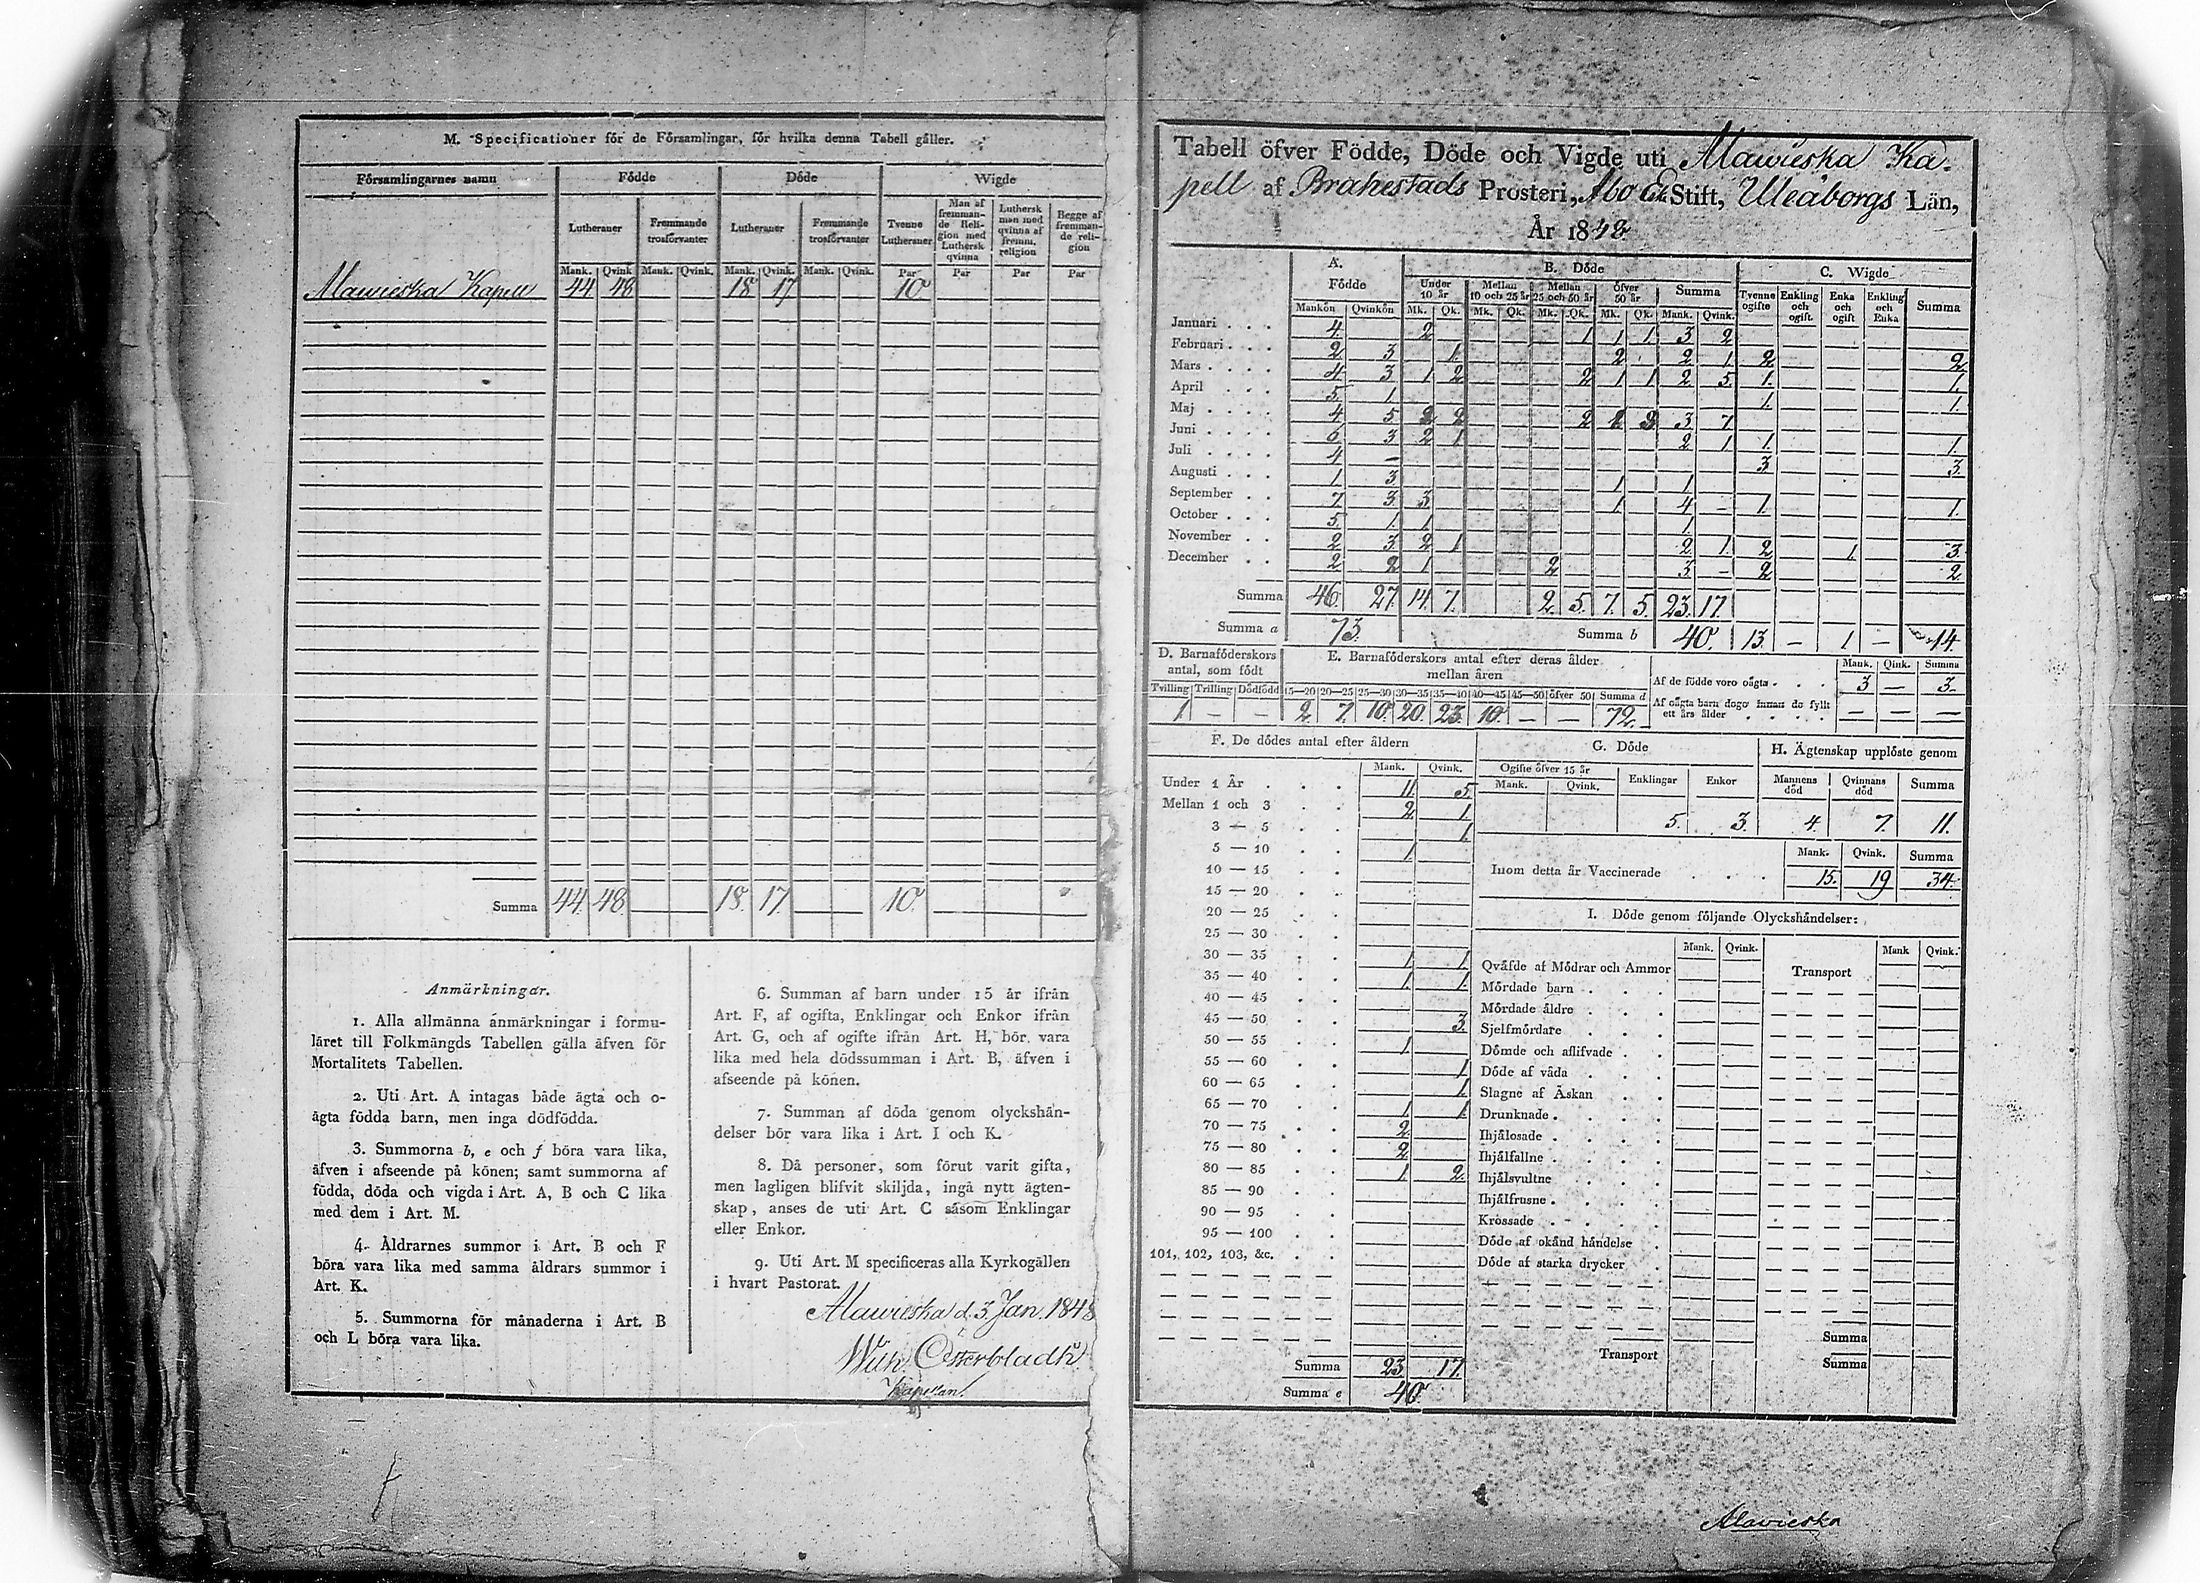 M. Specificationer för de Församlingar, för hvilka denna Tabell gäller.
Församlingarnes namn Födde Döde Wigde
Lutheraner Fremmande trosförvanter Lutheraner Fremmande trosförvanter Tvenne Lutheraner Man af fremmande Religion med Luthersk qvinna Luthersk man med qvinna af fremm. religion Begge af fremmande religion
Mank. Qvink Mank. Qvink. Mank. Qvink. Mank. Qvink. Par Par Par Par
Alawieska Kapell 44 48 18 17 10
Summa 44. 48. 18. 17. 10.
Anmärkningar.
1. Alla allmänna anmärkningar i formu-
läret till Folkmängds Tabellen gälla äfven för
Mortalitets Tabellen.
2. Uti Art. A intagas både ägta och o-
ägta födda barn, men inga dödfödda.
3. Summorna b, e och f böra vara lika,
äfven i afseende på könen; samt summorna af
födda, döda och vigda i Art. A, B och C lika
med dem i Art. M.
4. Åldrarnes summor i Art. B och F
böra vara lika med samma åldrars summor i
Art. K.
5. Summorna för månaderna i Art. B
och L böra vara lika.
6. Summan af barn under 15 år ifrån
Art. F, af ogifta, Enklingar och Enkor ifrån
Art. G, och af ogifte ifrån Art. H, bör vara
lika med hela dödssumman i Art. B, äfven i
afseende på könen.
7. Summan af döda genom olyckshän-
delser bör vara lika i Art. I och K.
8. Då personer, som förut varit gifta,
men lagligen blifvit skiljda, ingå nytt ägten-
skap, anses de uti Art. C såsom Enklingar
eller Enkor.
9. Uti Art. M specificeras alla Kyrkogällen
i hvart Pastorat.
Alawieska d. 3 Jan. 1848
Wilh Österbladh
Kapellan.
Tabell öfver Födde, Döde och Vigde uti Alawieska Ka-
pell af Brahestads Prosteri, Åbo Stift, Uleåborgs Län,
År 1848
A. Födde B. Döde C. Wigde
Under 10 år Mellan 10 och 25 år Mellan 25 och 50 år Öfver 50 år Summa Tvenne ogifte Enkling och ogift. Enka och ogift Enkling och Enka Summa
Mankön Qvinkön Mk. Qk. Mk. Qk. Mk. Qk. Mk. Qk. Mank. Qvink.
Januari . . . 4 2 1 1 1 3 2
Februari . . . 2 3 1 2 2 1 2 2
Mars . . . . 4 3 1 2 2 1 1 2 5 1. 1.
April . . . 5 1 1. 1.
Maj . . . . 4 5 2 2 2 3 7
Juni . . . . 6 3 2 1 2 1 1. 1.
Juli . . . . 4 – 3 3.
Augusti . . . 1 3 1 1
September . . 7 3 3 1 4 – 1. 1.
October . . . 5 1 1 1
November . . 2 3 2 1 2 1 2 1. 3
December . . 2 2 1 2 3 – 2 2
Summa 46. 27. 14. 7. 2. 5. 7. 5. 23. 17.
Summa a 73. Summa b 40. 13. – 1. – 14.
D. Barnaföderskors antal, som födt E. Barnaföderskors antal efter deras ålder mellan åren
Tvilling Trilling Dödfödd 15—20 20—25 25—30 30—35 35—40 40—45 45—50 öfver 50 Summa d
1. – – 2. 7. 10. 20. 23. 10. – – 72.
Mank. Qink. Summa
Af de födde voro oägta . . . 3 – 3.
Af oägta barn dogo innan de fyllt ett års ålder . . . . – – –
F. De dödes antal efter åldern
Mank. Qvink.
Under 1 År . . . 11. 5.
Mellan 1 och 3 . . 2 1
3 — 5 . . 1.
5 — 10 . . 1
10 — 15 . .
15 — 20 . .
20 — 25 . .
25 — 30 . .
30 — 35 . . 1 1.
35 — 40 . . 1. 1.
40 — 45 . .
45 — 50 . . 3.
50 — 55 . . 1
55 — 60 . . 1.
60 — 65 . . 1.
65 — 70 . . 1 1.
70 — 75 . . 2
75 — 80 . . 2
80 — 85 . . 1. 2.
85 — 90 . .
90 — 95 . .
95 — 100 . .
101, 102, 103, &c. . .
Summa 23 17.
Summa e 40.
G. Döde
Ogifte öfver 15 år Enklingar Enkor
Mank. Qvink.
5. 3.
H. Ägtenskap upplöste genom
Mannens död Qvinnans död Summa
4. 7. 11.
Mank. Qvink. Summa
Inom detta år Vaccinerade . . . . 15. 19 34.
I. Döde genom följande Olyckshändelser:
Mank. Qvink. Mank Qvink.
Qväfde af Mödrar och Ammor Transport
Mördade barn . . .
Mördade äldre . . .
Sjelfmördare . . .
Dömde och aflifvade . .
Döde af våda . . .
Slagne af Åskan . .
Drunknade . . . .
Ihjälosade . . . .
Ihjälfallne . . . .
Ihjälsvultne . . .
Ihjälfrusne . . . .
Krössade . . . .
Döde af okänd händelse .
Döde af starka drycker .
Summa
Transport Summa
Alavieska